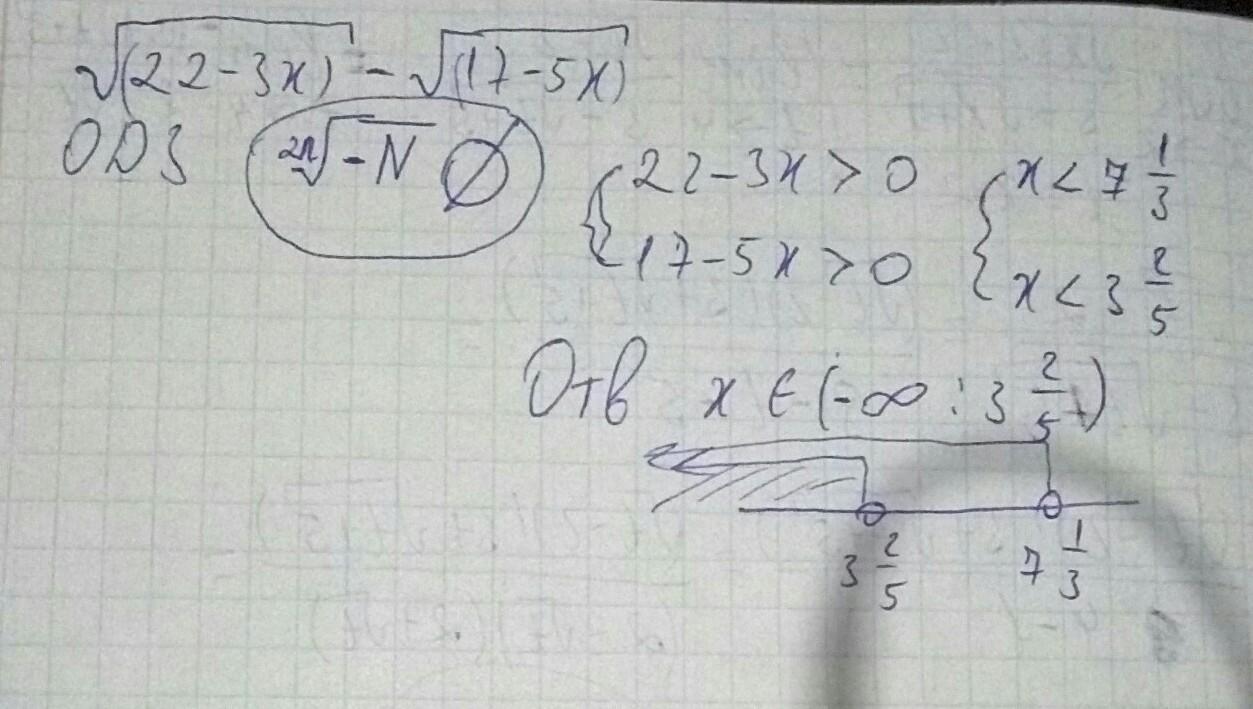 √(22-3x) - √(17-5x)
ODЗ ²ⁿ√-N ∅
{22-3x > 0 {x < 7 1/3
17-5x > 0 x < 3 2/5
Отв x ∈ (-∞ ; 3 2/5)
3 2/5 7 1/3